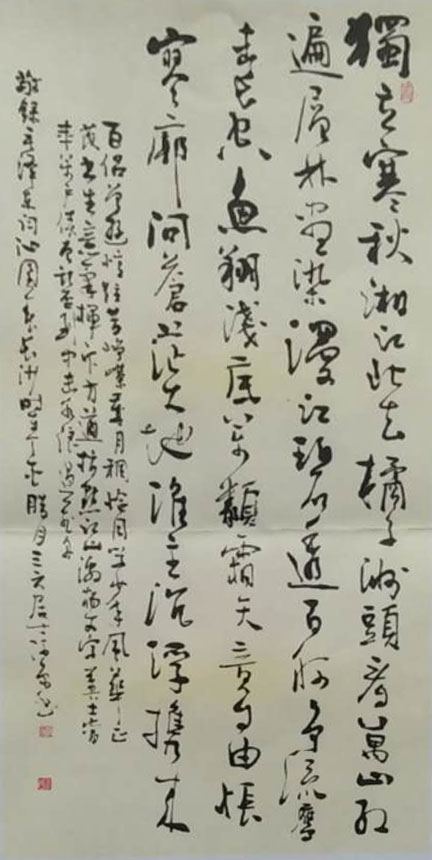 獨立寒秋湘江北去橘子洲頭看萬山紅
遍層林盡染漫江碧透百舸爭流鷹
擊長空魚翔淺底萬類霜天競自由悵
寥廓問蒼茫大地誰主沉浮攜來
百侶曾遊憶往昔崢嶸歲月稠恰同學少年風華正
茂書生意氣揮斥方遒指點江山激揚文字糞土當
年萬戶侯曾記否到中流擊水浪遏飛舟
敬錄毛澤東詞沁園春長沙時臘月三